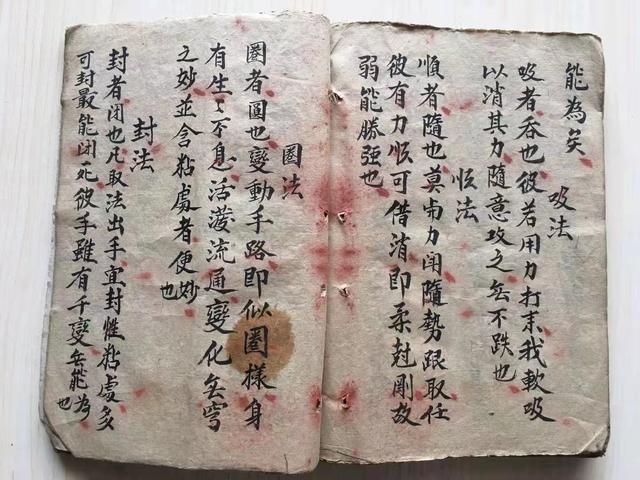 能為矣
吸法
吸者吞也彼若用力打来我軟吸
以消其力隨意攻之無不跌也
順法
順者隨也莫与力闹隨势跟取任
彼有力順可借消即柔尅剛故
弱能勝強也
圈法
圈者圓也變動手路即似圈樣身
有生〻不息活潑流通變化無穹
之妙並含粘處者便妙也
封法
封者闭也凡取法出手宜封惟粘處多
可封最能闭死彼手雖有千變無能為也